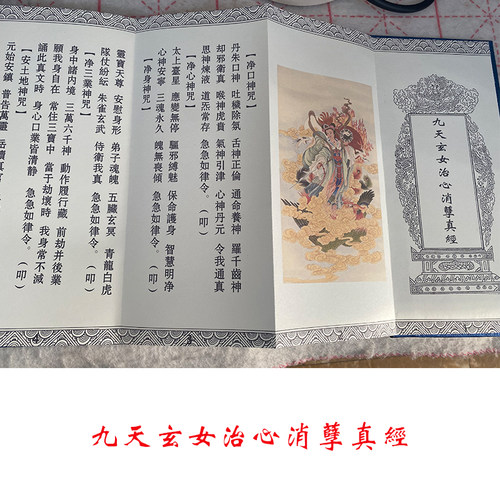 九天玄女治心消孽真經
【净口神咒】
丹朱口神 吐穢除氛 舌神正倫 通命養神 羅千齒神
却邪衛真 喉神虎賁 氣神引津 心神丹元 令我通真
思神煉液 道炁常存 急急如律令。(叩)
【净心神咒】
太上臺星 應變無停 驅邪縛魅 保命護身 智慧明净
心神安寧 三魂永久 魄無喪傾 急急如律令。(叩)
【净身神咒】
靈寶天尊 安慰身形 弟子魂魄 五臟玄冥 青龍白虎
隊仗紛紜 朱雀玄武 侍衛我真 急急如律令。(叩)
【净三業神咒】
身中諸内境 三萬六千神 動作履行藏 前劫并後業
願我身自在 常住三寶中 當于劫壞時 我身常不滅
誦此真文時 身心口業皆清静 急急如律令。(叩)
【安土地神咒】
元始安鎮 普告萬靈 岳瀆真官
九天玄女治心消孽真經